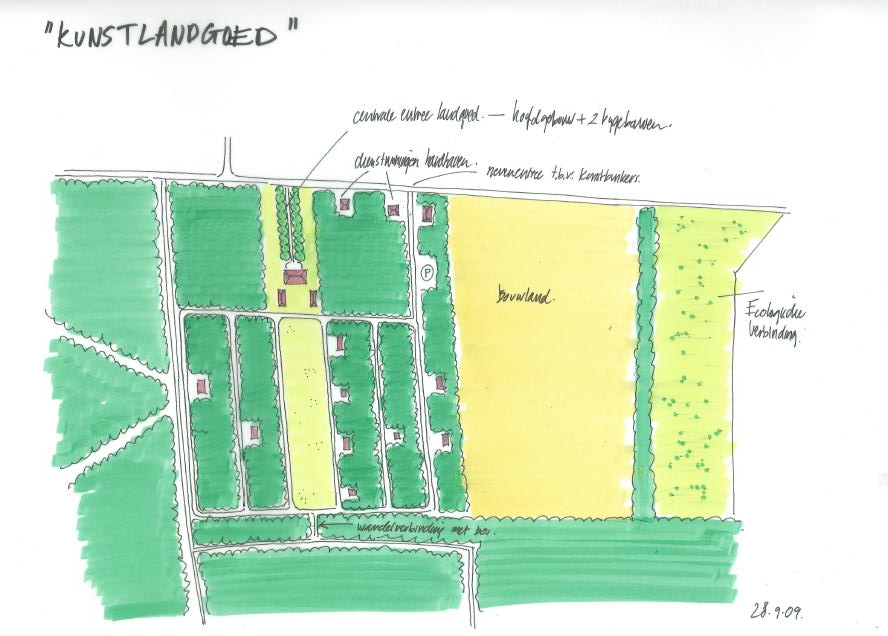 "KUNSTLANDGOED"
centrale entree landgoed. — hoofdgebouw + 2 bijgebouwen.
dienstwoningen handhaven.
nevenentree t.b.v. kunstbunkers.
P
bouwland.
Ecologische
verbinding.
wandelverbinding met bos.
28.9.09.